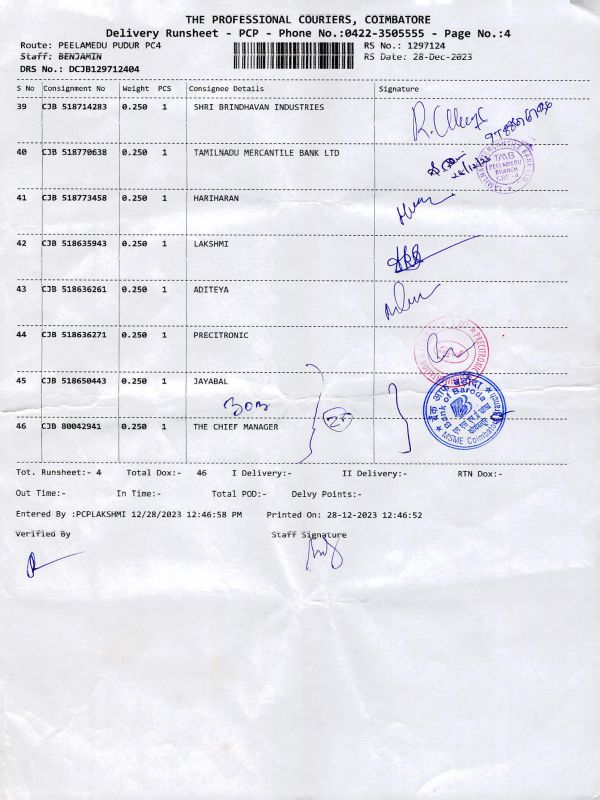 THE PROFESSIONAL COURIERS, COIMBATORE
Delivery Runsheet - PCP - Phone No.:0422-3505555 - Page No.:4
Route: PEELAMEDU PUDUR PC4 RS No.: 1297124
Staff: BENJAMIN RS Date: 28-Dec-2023
DRS No.: DCJB129712404
S No Consignment No Weight PCS Consignee Details Signature
39 CJB 518714283 0.250 1 SHRI BRINDHAVAN INDUSTRIES
40 CJB 518770638 0.250 1 TAMILNADU MERCANTILE BANK LTD
TMB
PEELAMEDU
BRANCH
41 CJB 518773458 0.250 1 HARIHARAN
42 CJB 518635943 0.250 1 LAKSHMI
43 CJB 518636261 0.250 1 ADITEYA
44 CJB 518636271 0.250 1 PRECITRONIC
PRECITRONIC
45 CJB 518650443 0.250 1 JAYABAL
बैंक ऑफ़ बड़ौदा
Bank of Baroda
MSME Coimbatore
46 CJB 80042941 0.250 1 THE CHIEF MANAGER
Tot. Runsheet:- 4 Total Dox:- 46 I Delivery:- II Delivery:- RTN Dox:-
Out Time:- In Time:- Total POD:- Delvy Points:-
Entered By :PCPLAKSHMI 12/28/2023 12:46:58 PM Printed On: 28-12-2023 12:46:52
Verified By Staff Signature